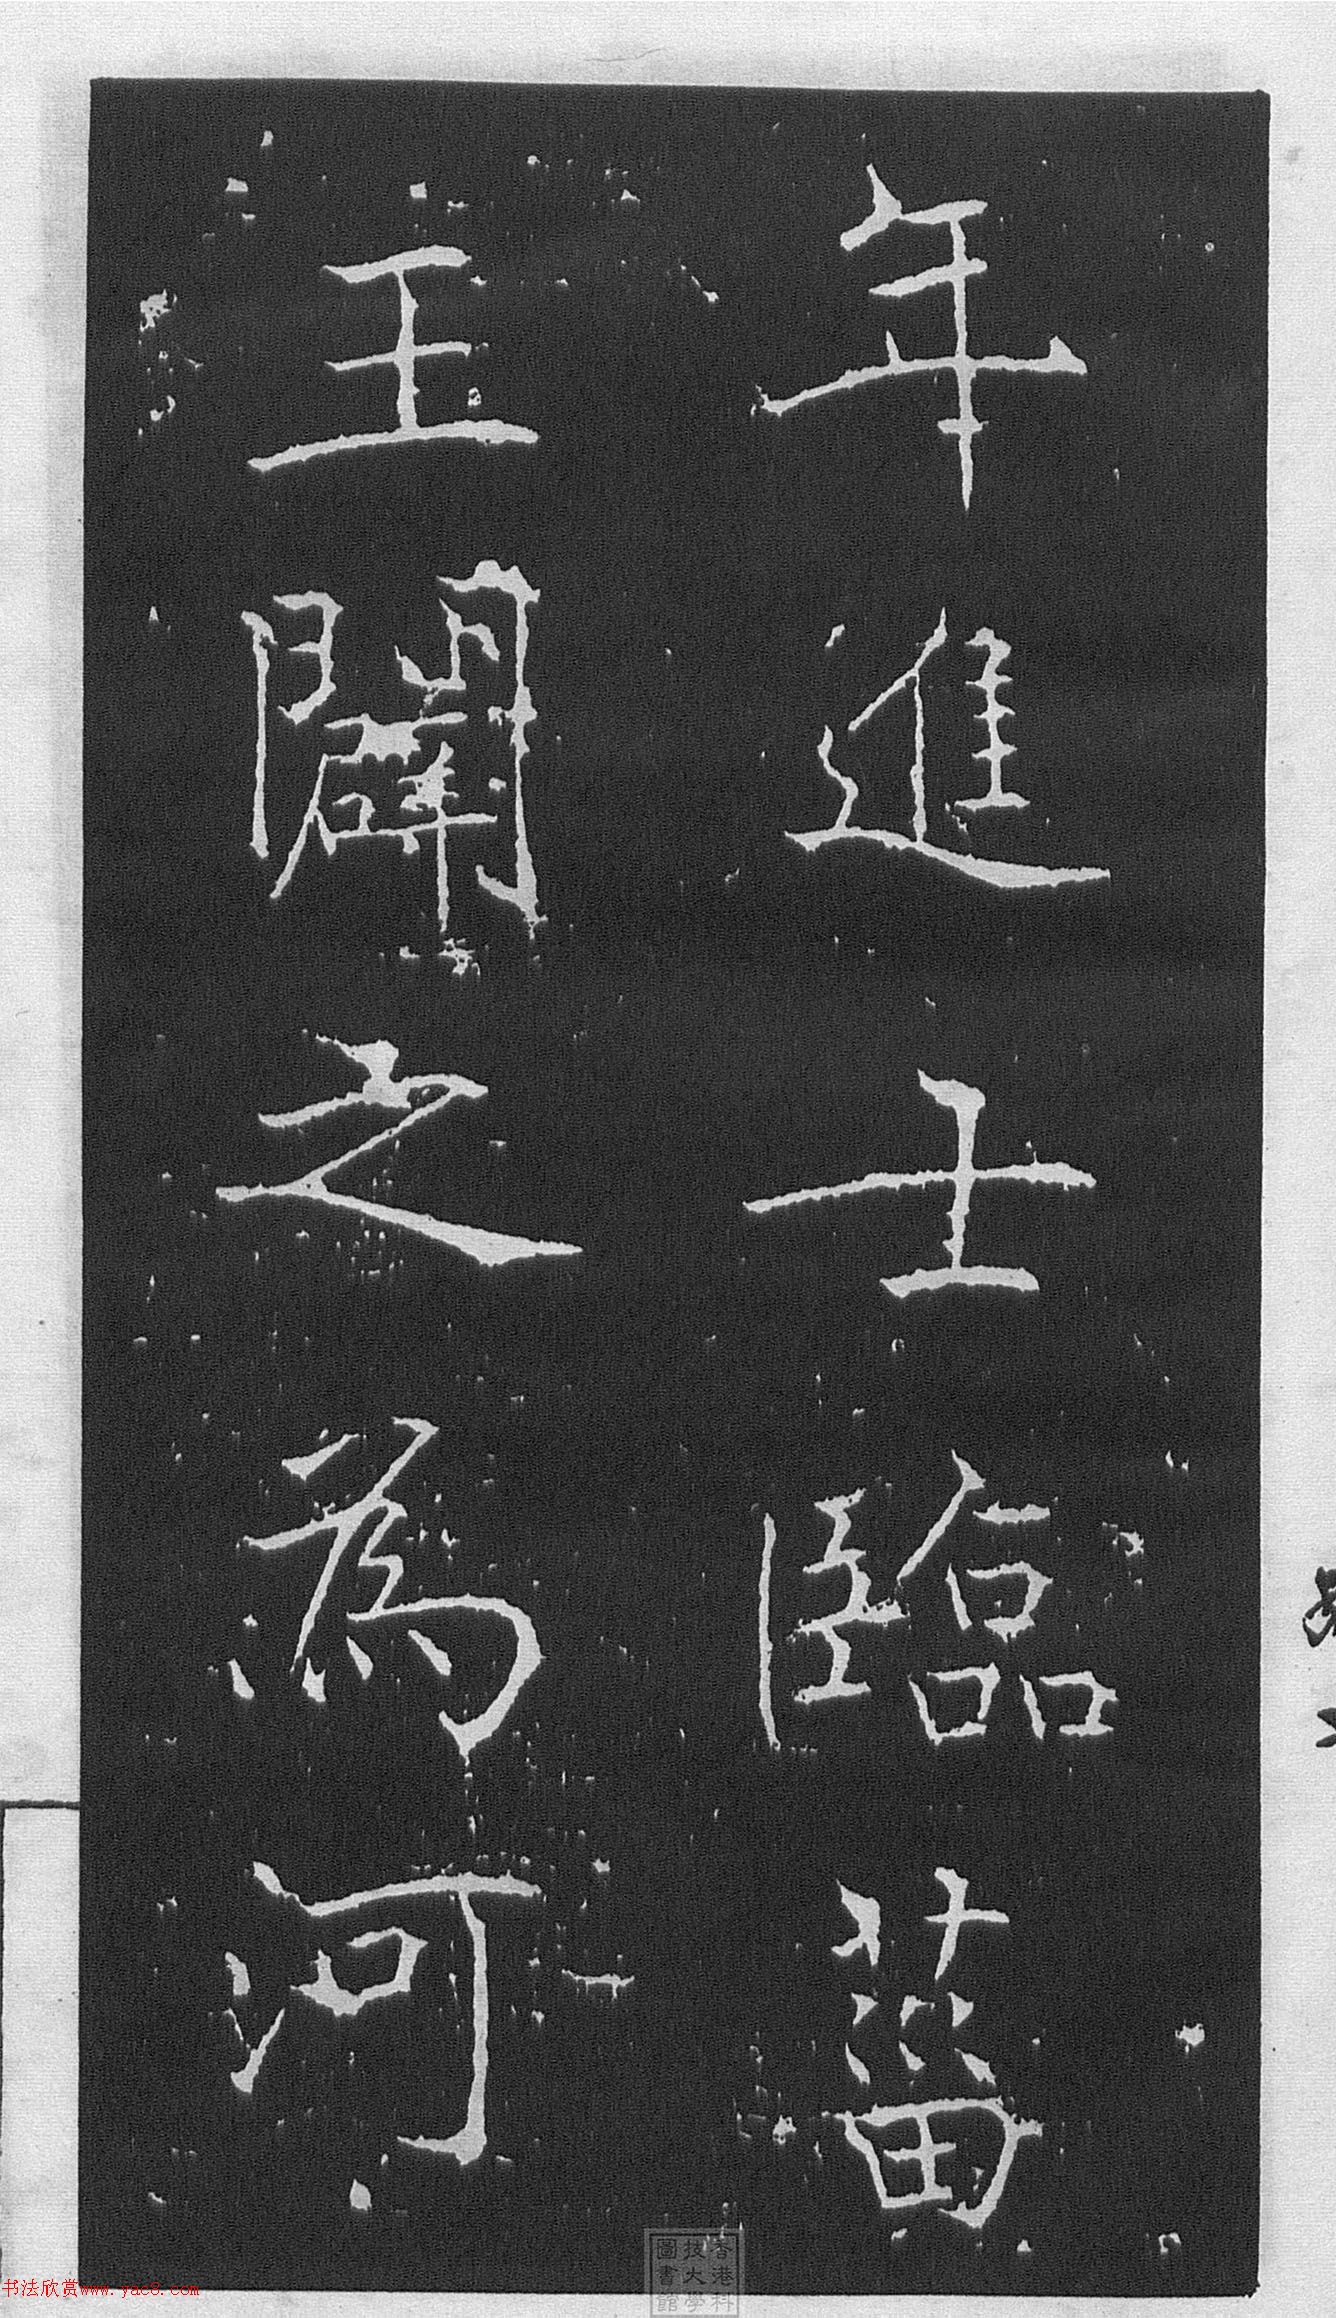 年進士臨菑
王闢之爲河
香港科
技大學
圖書館
书法欣赏www.yac8.com